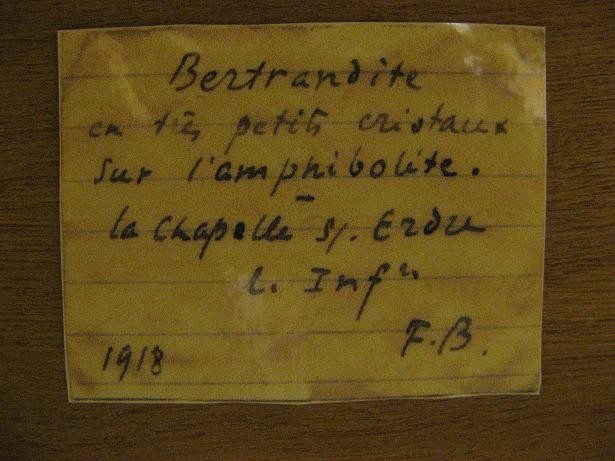 Bertrandite
en très petits cristaux
sur l'amphibolite.
-
la Chapelle s/. Erdre
L. Infre
1918 F.B.